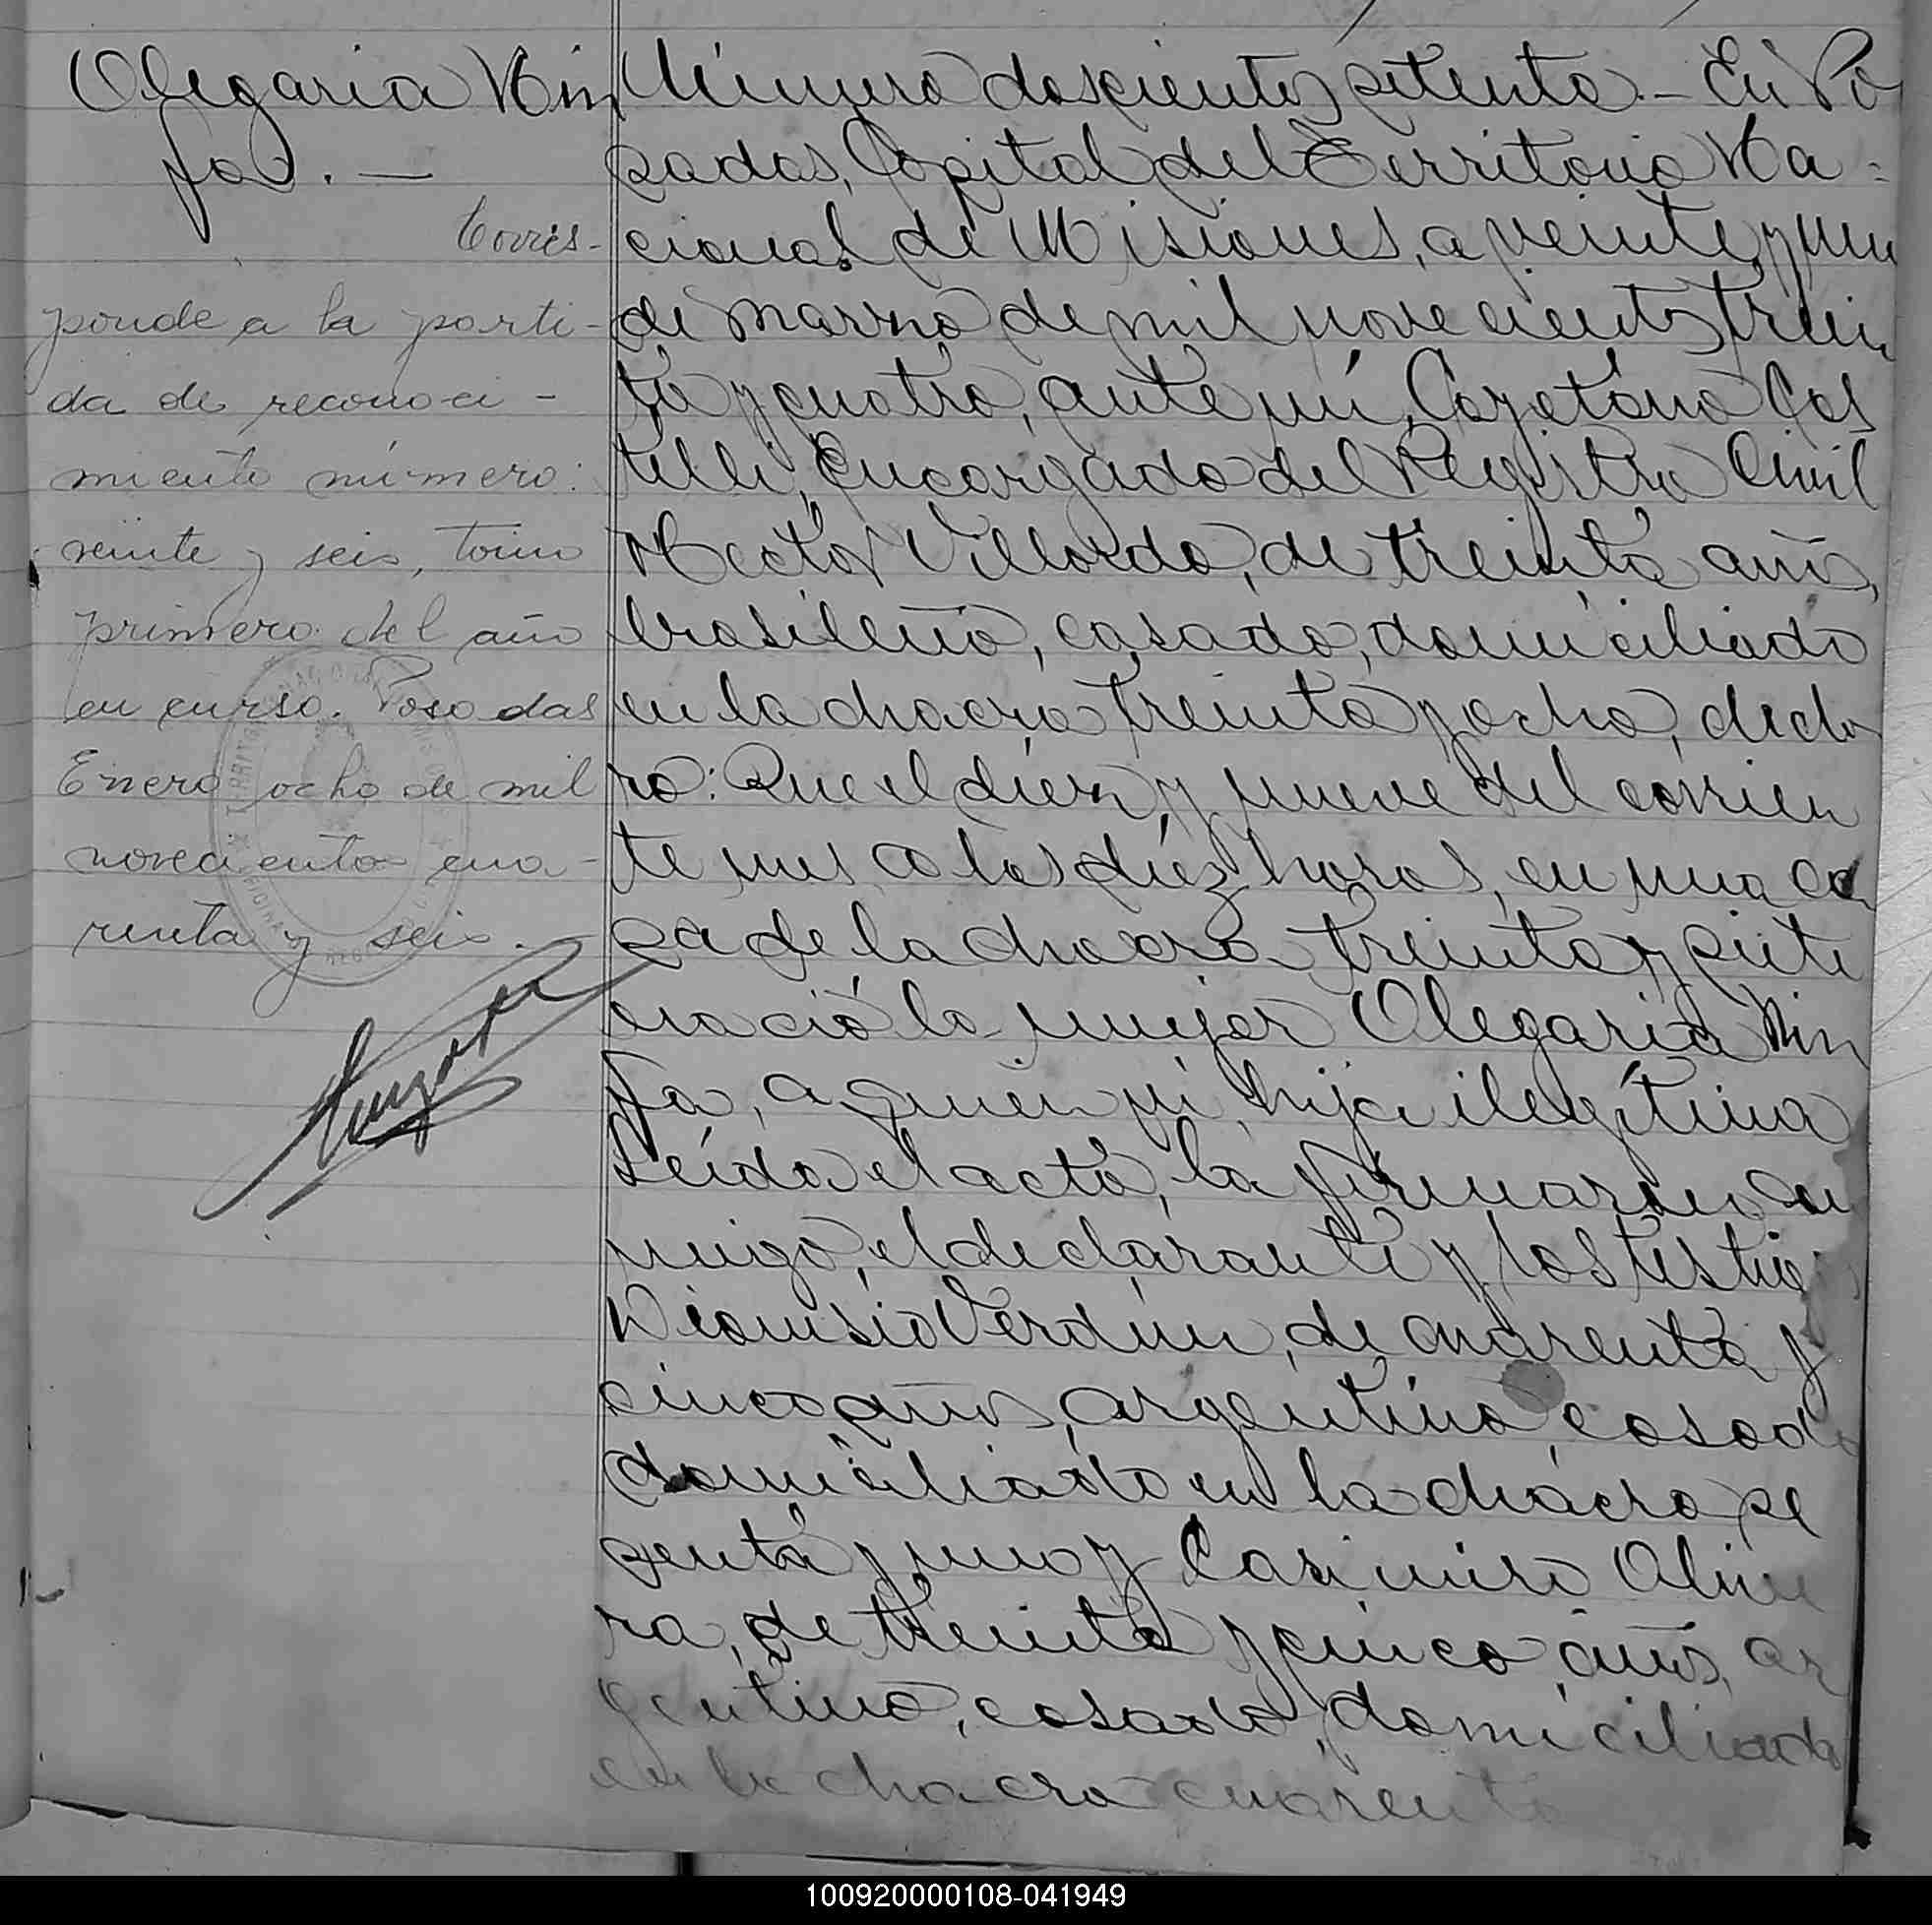 Olegaria Nin
fa. —
Corres-
ponde a la parti-
da de reconoci-
miento número:
veinte y seis, tomo
primero del año
en curso. Posadas
Enero ocho de mil
novecientos cua-
renta y seis. —
Número doscientos setenta. - En Po
sadas, Capital del Territorio Na=
cional de Misiones, a veinte y un
de marzo de mil novecientos trein
ta y cuatro, ante mí, Cayetano Cas
telli, Encargado del Registro Civil
Hector Villordo, de treinta años,
brasileño, casado, domiciliado
en la chacra treinta y ocho, decla
ró: Que el diez y nueve del corrien
te mes a las diez horas, en una ca
sa de la chacra treinta y siete
nació la mujer Olegaria Nin
fa, a quien hija ilegítima
Leída el acta, la firmaron con
migo, el declarante y los testigos
Dionisio Verdun, de cuarenta y
cinco años, argentino, casado
domiciliado en la chacra se
senta y uno y Casimiro Olive
ra, de treinta y cinco años, ar
gentino, casado, domiciliado
en la chacra cuarenta
100920000108-041949